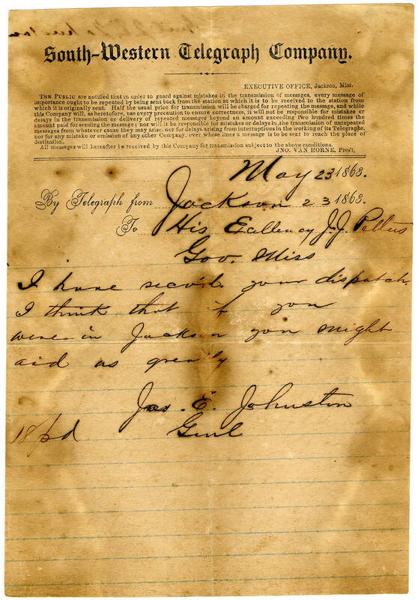 South-Western Telegraph Company.
EXECUTIVE OFFICE, Jackson, Miss.
THE PUBLIC are notified that in order to guard against mistakes in the transmission of messages, every message of
importance ought to be repeated by being sent back from the station at which it is to be received to the station from
which it is originally sent. Half the usual price for transmission will be charged for repeating the message, and while
this Company will, as heretofore, use every precaution to ensure correctness, it will not be responsible for mistakes or
delays in the transmission or delivery of repeated messages beyond an amount exceeding two hundred times the
amount paid for sending the message; nor will it be responsible for mistakes or delays in the transmission of unrepeated
messages from whatever cause they may arise, nor for delays arising from interruptions in the working of its Telegraphs,
nor for any mistake or omission of any other Company, over whose lines a message is to be sent to reach the place of
destination.
All messages will hereafter be received by this Company for transmission subject to the above conditions.
JNO. VAN HORNE, Pres't.
May 23 1863.
By Telegraph from Jackson 23 1863.
To His Excellency J.J. Pettus
Gov. Miss
I have recevd your dispatch
I think that if you
were in Jackson you might
aid us greatly
Jos. E. Johnston
18 pd Genl